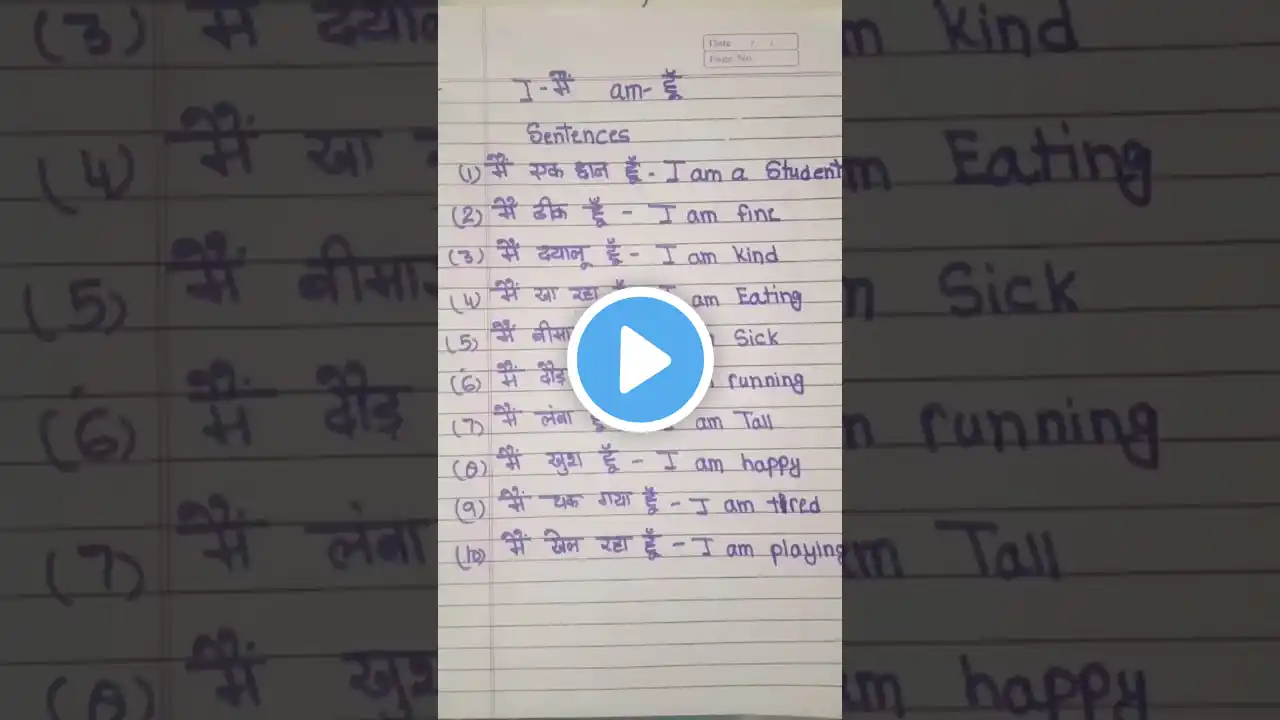 Date / /
Page No.
I - मैं am - हूँ
Sentences
(1) मैं एक छात्र हूँ - I am a Student
(2) मैं ठीक हूँ - I am fine
(3) मैं दयालू हूँ - I am kind
(4) मैं खा रहा am Eating
(5) मैं Sick
(6) मैं दौड़ running
(7) मैं लंबा am Tall
(8) मैं खुश हूँ - I am happy
(9) मैं थक गया हूँ - I am tired
(10) मैं खेल रहा हूँ - I am playing